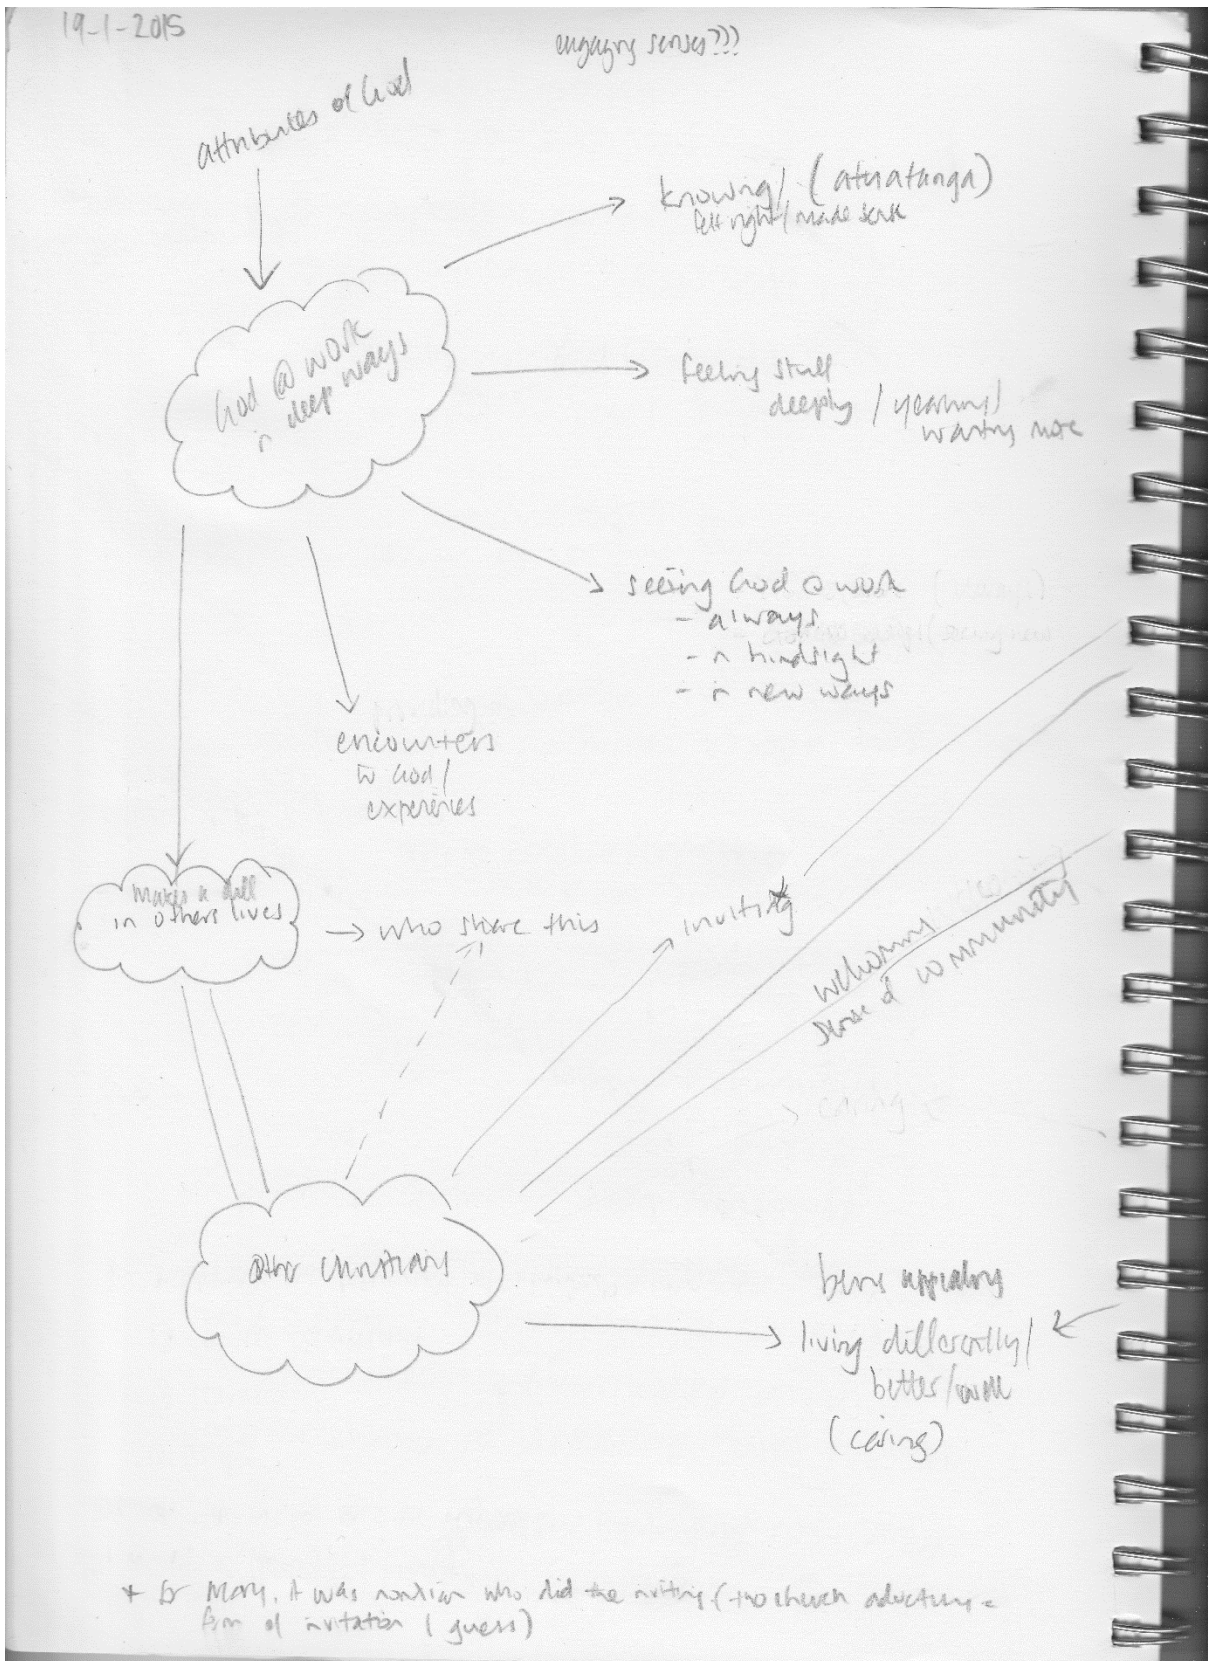 19-1-2015
engaging senses???
attributes of God
knowing/ (atuatanga)
felt right/made sense
God @ work
in deep ways
feeling stuff
deeply / yearning/
wanting more
seeing God @ work
- always
- in hindsight
- in new ways
encounters
w God /
experiences
makes a diff
in others lives
→ who share this
inviting*
welcoming
sense of community
caring
other Christians
being appealing
living differently/
better/well
(caring)
* for Mary, it was nonXian who did the inviting (tho church advertising =
form of invitation I guess)